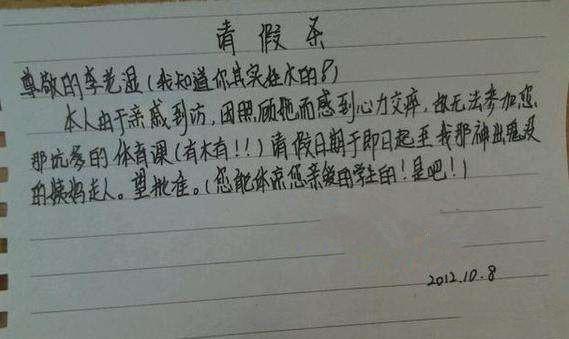 请假条
尊敬的李老湿(我知道你其实姓木的?)
本人由于亲戚到访,因照顾他而感到心力交瘁,故无法参加您
那坑爹的体育课(有木有!!)请假日期于即日起至我那神出鬼没
的姨妈走人。望批准。(您能体谅您亲爱的学生的!是吧!)
2012.10.8